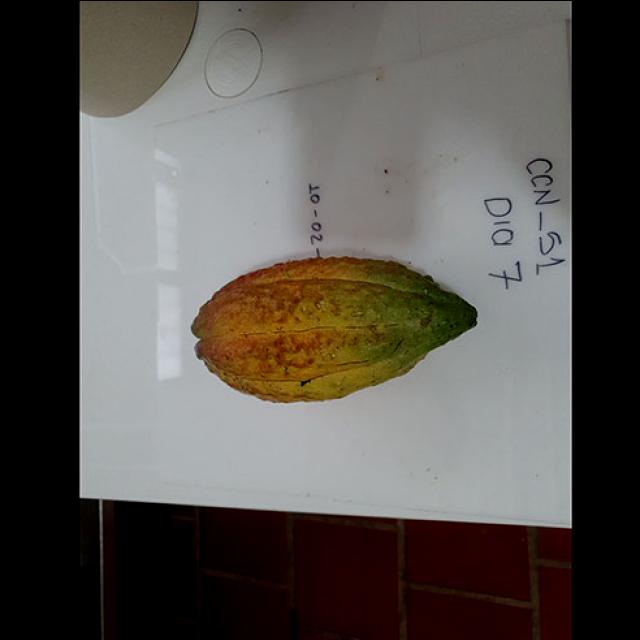 CCN_51
DIA 7
TO-02-